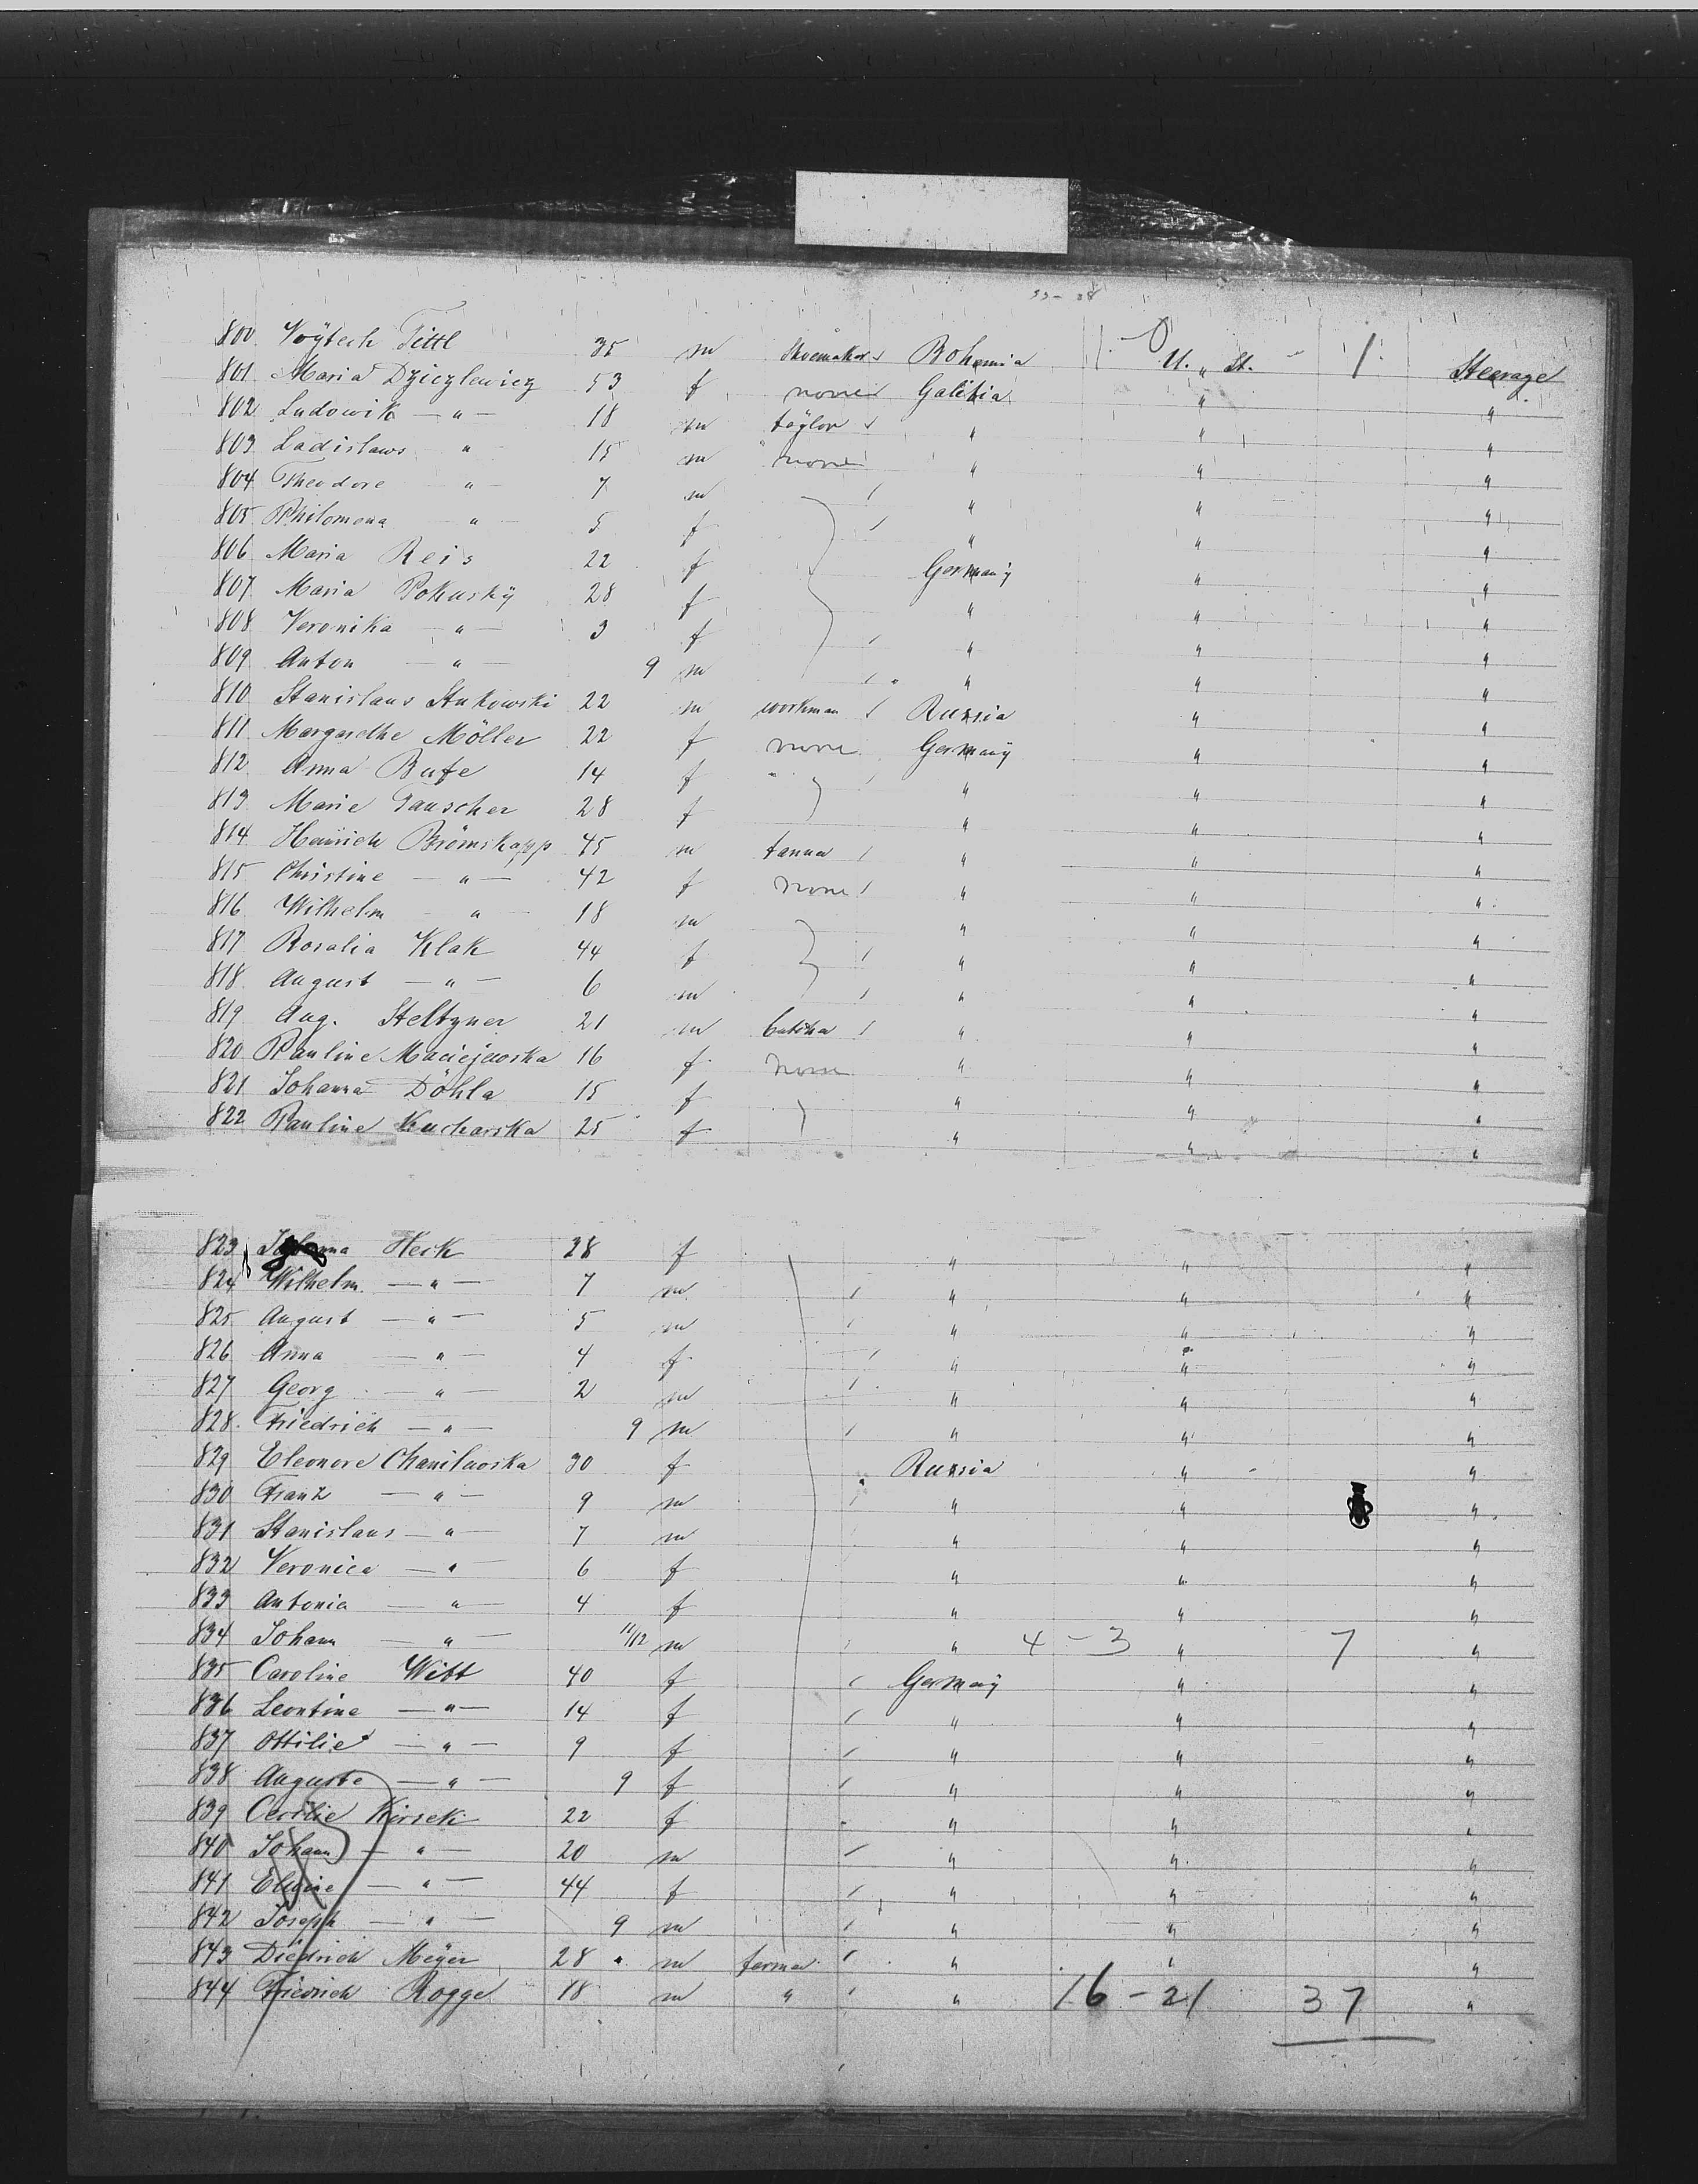 33 - 28
800. Voÿtech Tittl 35 m shoemaker Bohemia 1. - 0 U. St. 1. Steerage
801 Maria Dziezlewicz 53 f none Galitia " "
802 Ludowik — " — 18 m taÿlor " " "
803 Ladislaws " 15 m none " " "
804 Theodore " 7 m " " "
805 Philomena " 5 f " " "
806 Maria Reis 22 f Germanÿ " "
807 Maria Pokuskÿ 28 f " " "
808 Veronika — " — 3 f " " "
809 Anton — " — 9 m " " "
810 Stanislaus Stukowski 22 m workman Russia " "
811 Margarethe Möller 22 f none Germanÿ " "
812 Anna Bufe 14 f " " "
813 Marie Tauscher 28 f " " "
814 Heinrich Brömskapp 45 m tanner " " "
815 Christine — " — 42 f none " " "
816 Wilhelm — " — 18 m " " "
817 Rosalia Klak 44 f " " "
818 August — " — 6 m " " "
819 Aug. Steltzner 21 m " " "
820 Pauline Maciejewska 16 f none " " "
821 Johanna Döhla 15 f " " "
822 Pauline Kucharska 25 f " " "
823 Heck 28 f " " "
824 Wilhelm — " — 7 m " " "
825 August — " — 5 m " " "
826 Anna — " — 4 f " " "
827 Georg — " — 2 m " " "
828 Friedrich — " — 9 m " " "
829 Eleonore Chanilewska 30 f Russia " "
830 Franz — " — 9 m " " "
831 Stanislaus — " 7 m " " "
832 Veronica — " 6 f " " "
833 Antonia — " — 4 f " " "
834 Johann — " — 11/12 m " 4 - 3 " 7 "
835 Caroline Witt 40 f Germanÿ " "
836 Leontine — " — 14 f " " "
837 Ottilie — " — 9 f " " "
838 Auguste — " — 9 f " " "
839 Cecilie Kirsek 22 f " " "
840 Johann — " — 20 m " " "
841 — " — 44 f " " "
842 Joseph — " — 9 m " " "
843 Diedrich Meÿer 28 " m farmer " " "
844 Friedrich Rogge 18 m " " 16 - 21 37 "